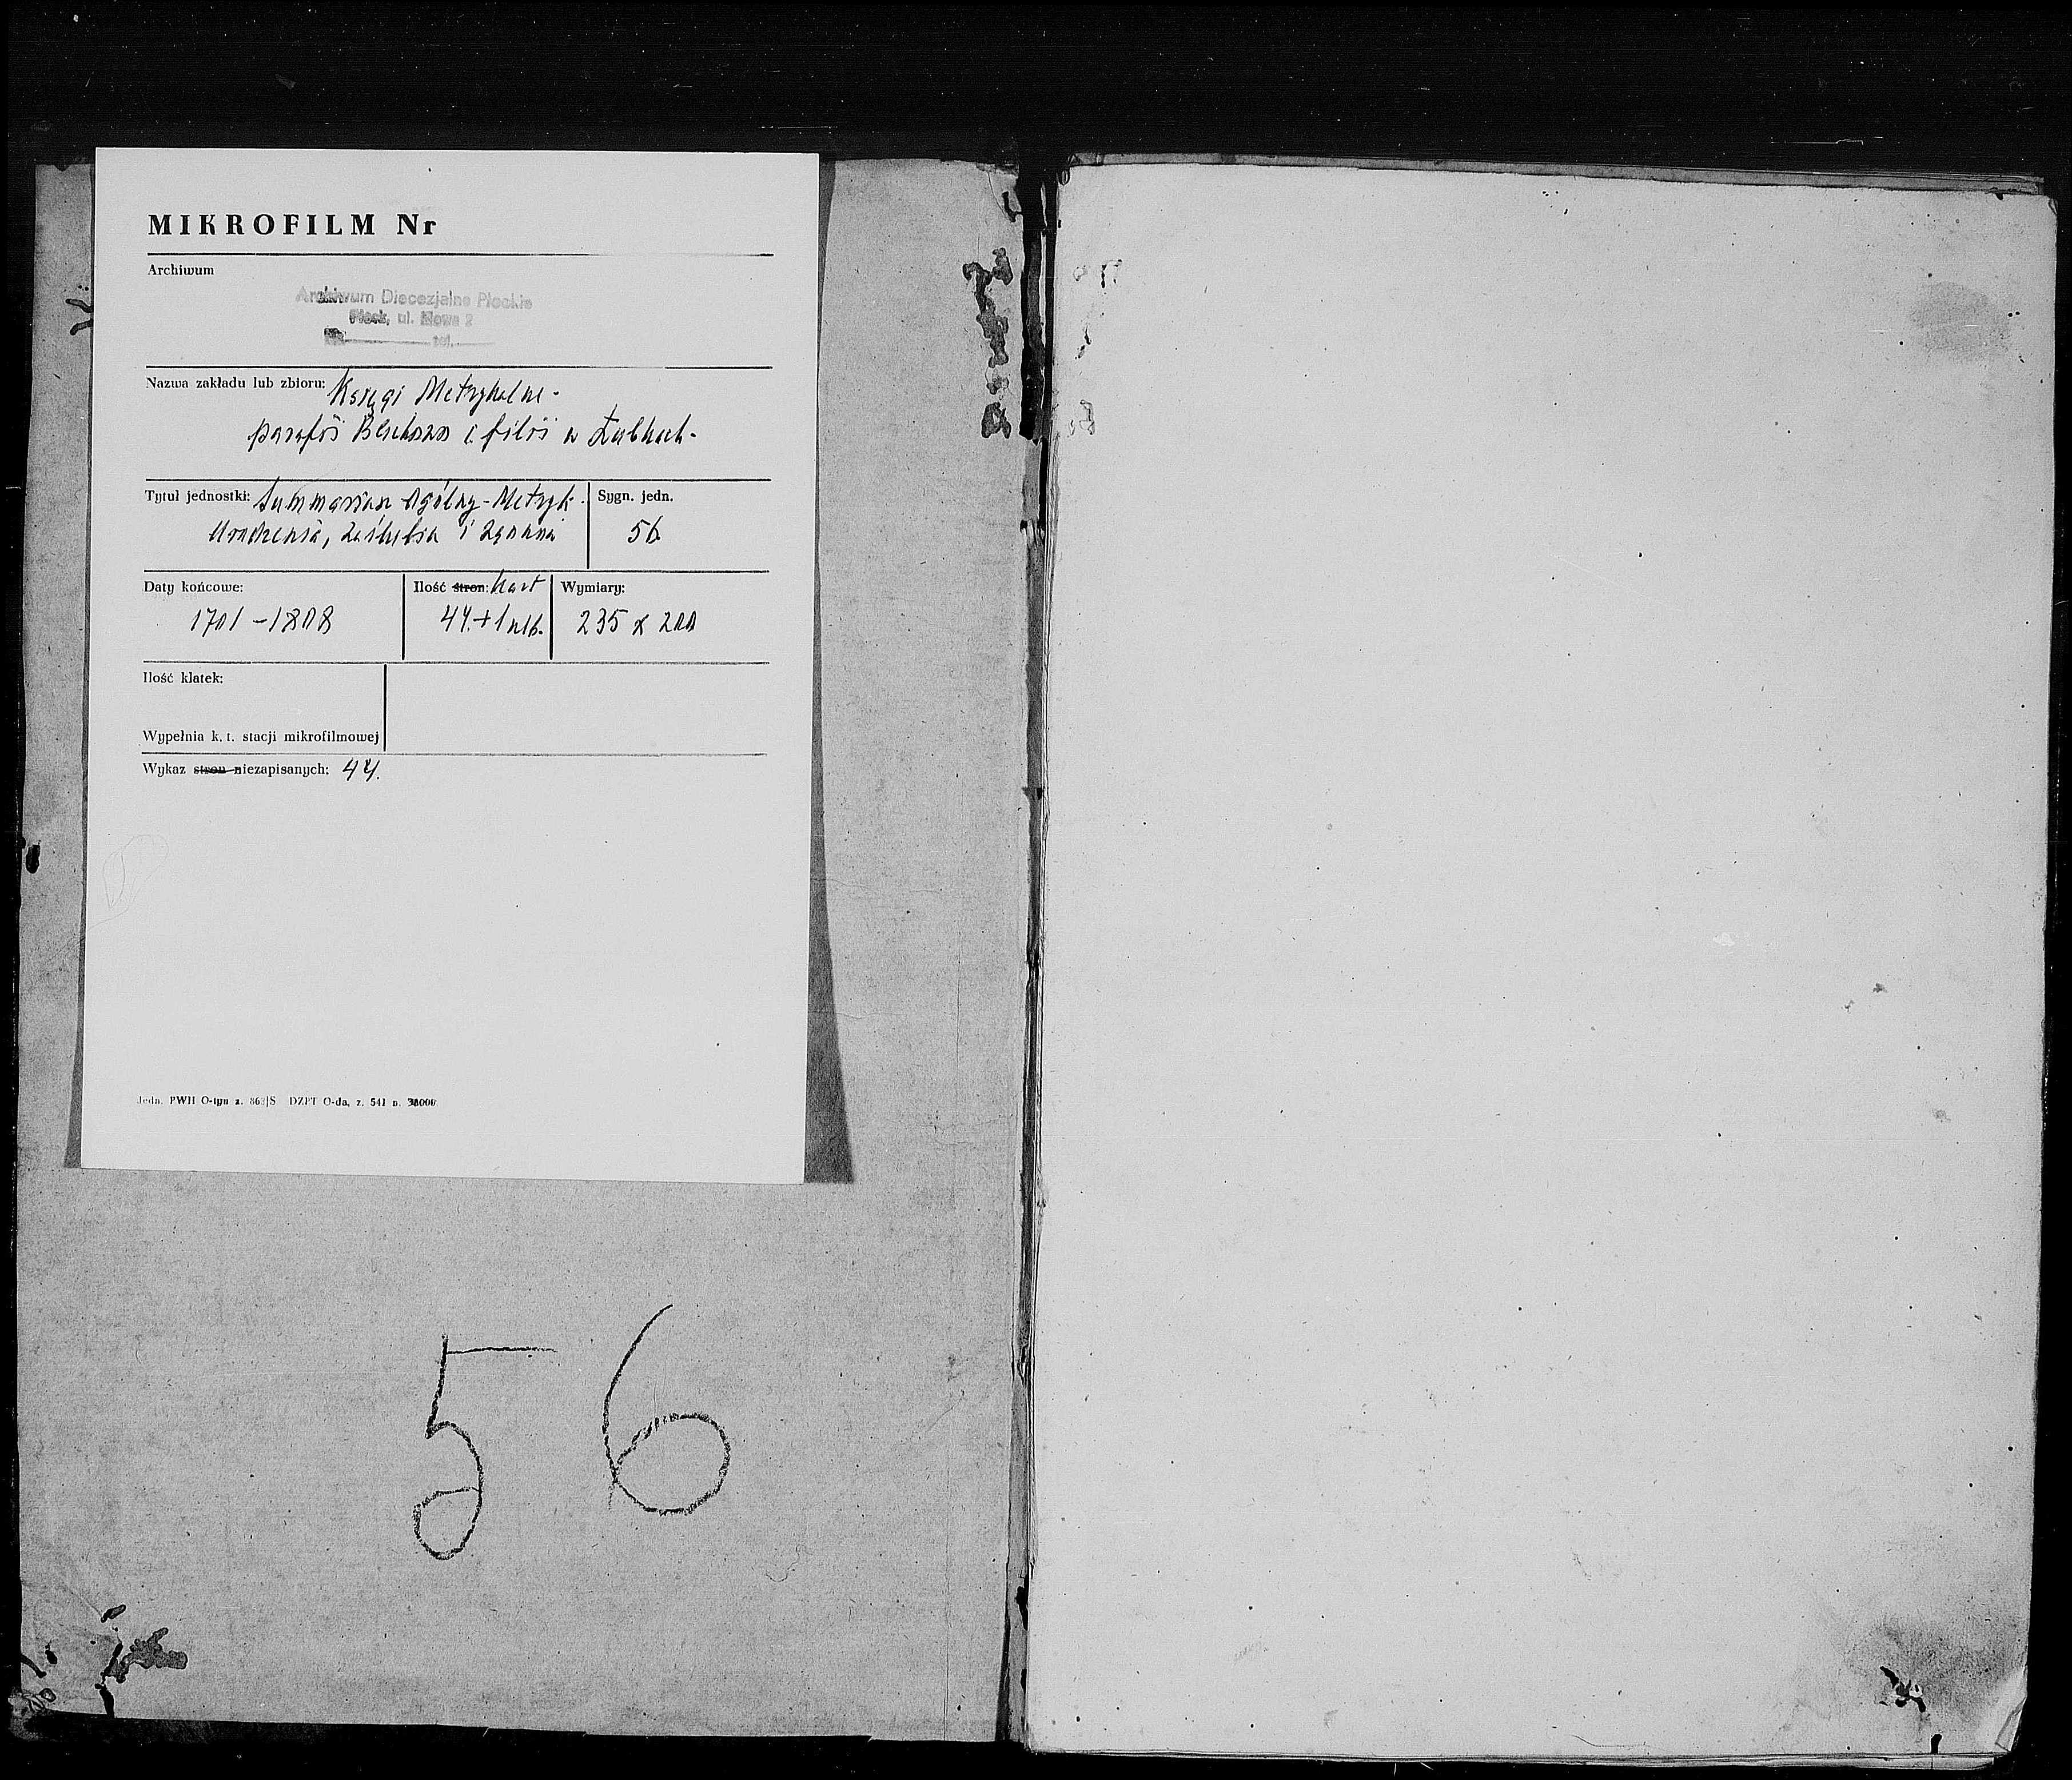 MIKROFILM Nr
Archiwum
Archiwum Diecezjalne Płockie
Płock, ul. Nowa 2
tel.
Nazwa zakładu lub zbioru: Księgi Metrykalne -
parafii i filii w Żabkach -
Tytuł jednostki: Summariusz Ogólny - Metryk
Sygn. jedn.
Urodzenia, Zaślubia i Zgonów
56
Daty końcowe:
Ilość stron: kart
Wymiary:
1701 - 1808
44 + 1 nlb.
235 x 200
Ilość klatek:
Wypełnia k. t. stacji mikrofilmowej
Wykaz stron niezapisanych: 44.
Jedn. PWH O-tyn z. 863/S DZPT O-da, z. 541 n. 38000
56